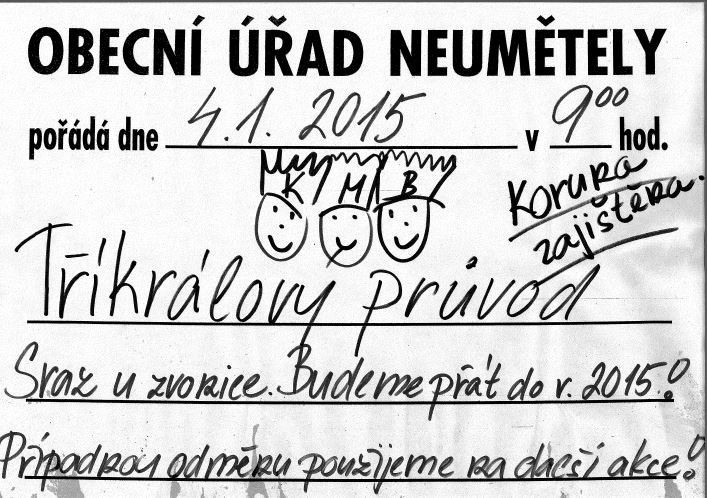 OBECNÍ ÚŘAD NEUMĚTELY
pořádá dne 4.1. 2015 v 9⁰⁰ hod.
K M B
Koruna
zajištěna.
Tříkrálový průvod
Sraz u zvonice. Budeme přát do r. 2015!
Případnou odměnu použijeme na další akce!